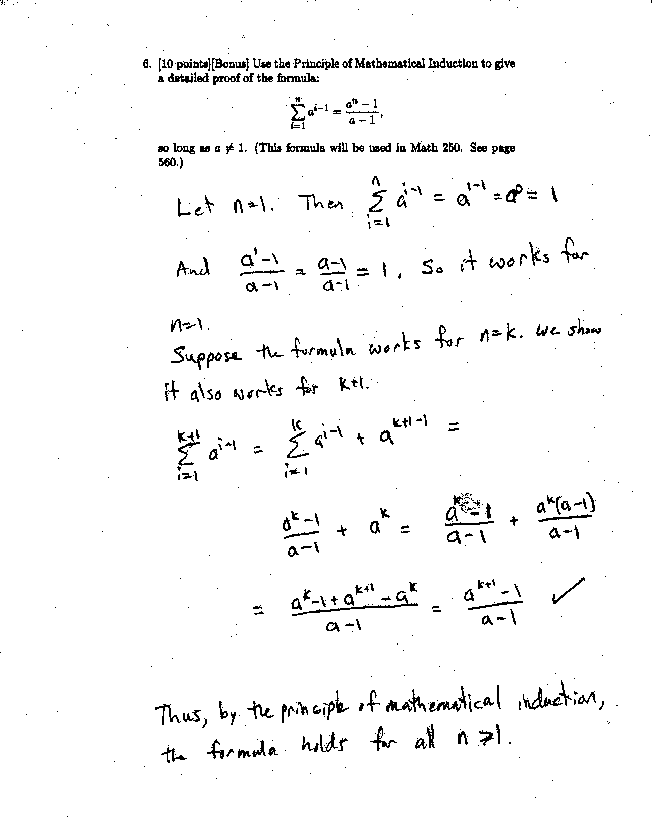 6. [10 points][Bonus] Use the Principle of Mathematical Induction to give
a detailed proof of the formula:
\sum_{i=1}^{n} a^{i-1} = \frac{a^n - 1}{a - 1},
so long as a ≠ 1. (This formula will be used in Math 250. See page
560.)
Let n=1. Then \sum_{i=1}^{n} a^{i-1} = a^{1-1} = a^0 = 1
And \frac{a^1-1}{a-1} = \frac{a-1}{a-1} = 1, So it works for
n=1.
Suppose the formula works for n=k. We show
it also works for k+1.
\sum_{i=1}^{k+1} a^{i-1} = \sum_{i=1}^{k} a^{i-1} + a^{k+1-1} =
\frac{a^k-1}{a-1} + a^k = \frac{a^k-1}{a-1} + \frac{a^k(a-1)}{a-1}
= \frac{a^k-1+a^{k+1}-a^k}{a-1} = \frac{a^{k+1}-1}{a-1} ✓
Thus, by the principle of mathematical induction,
the formula holds for all n ≥ 1.